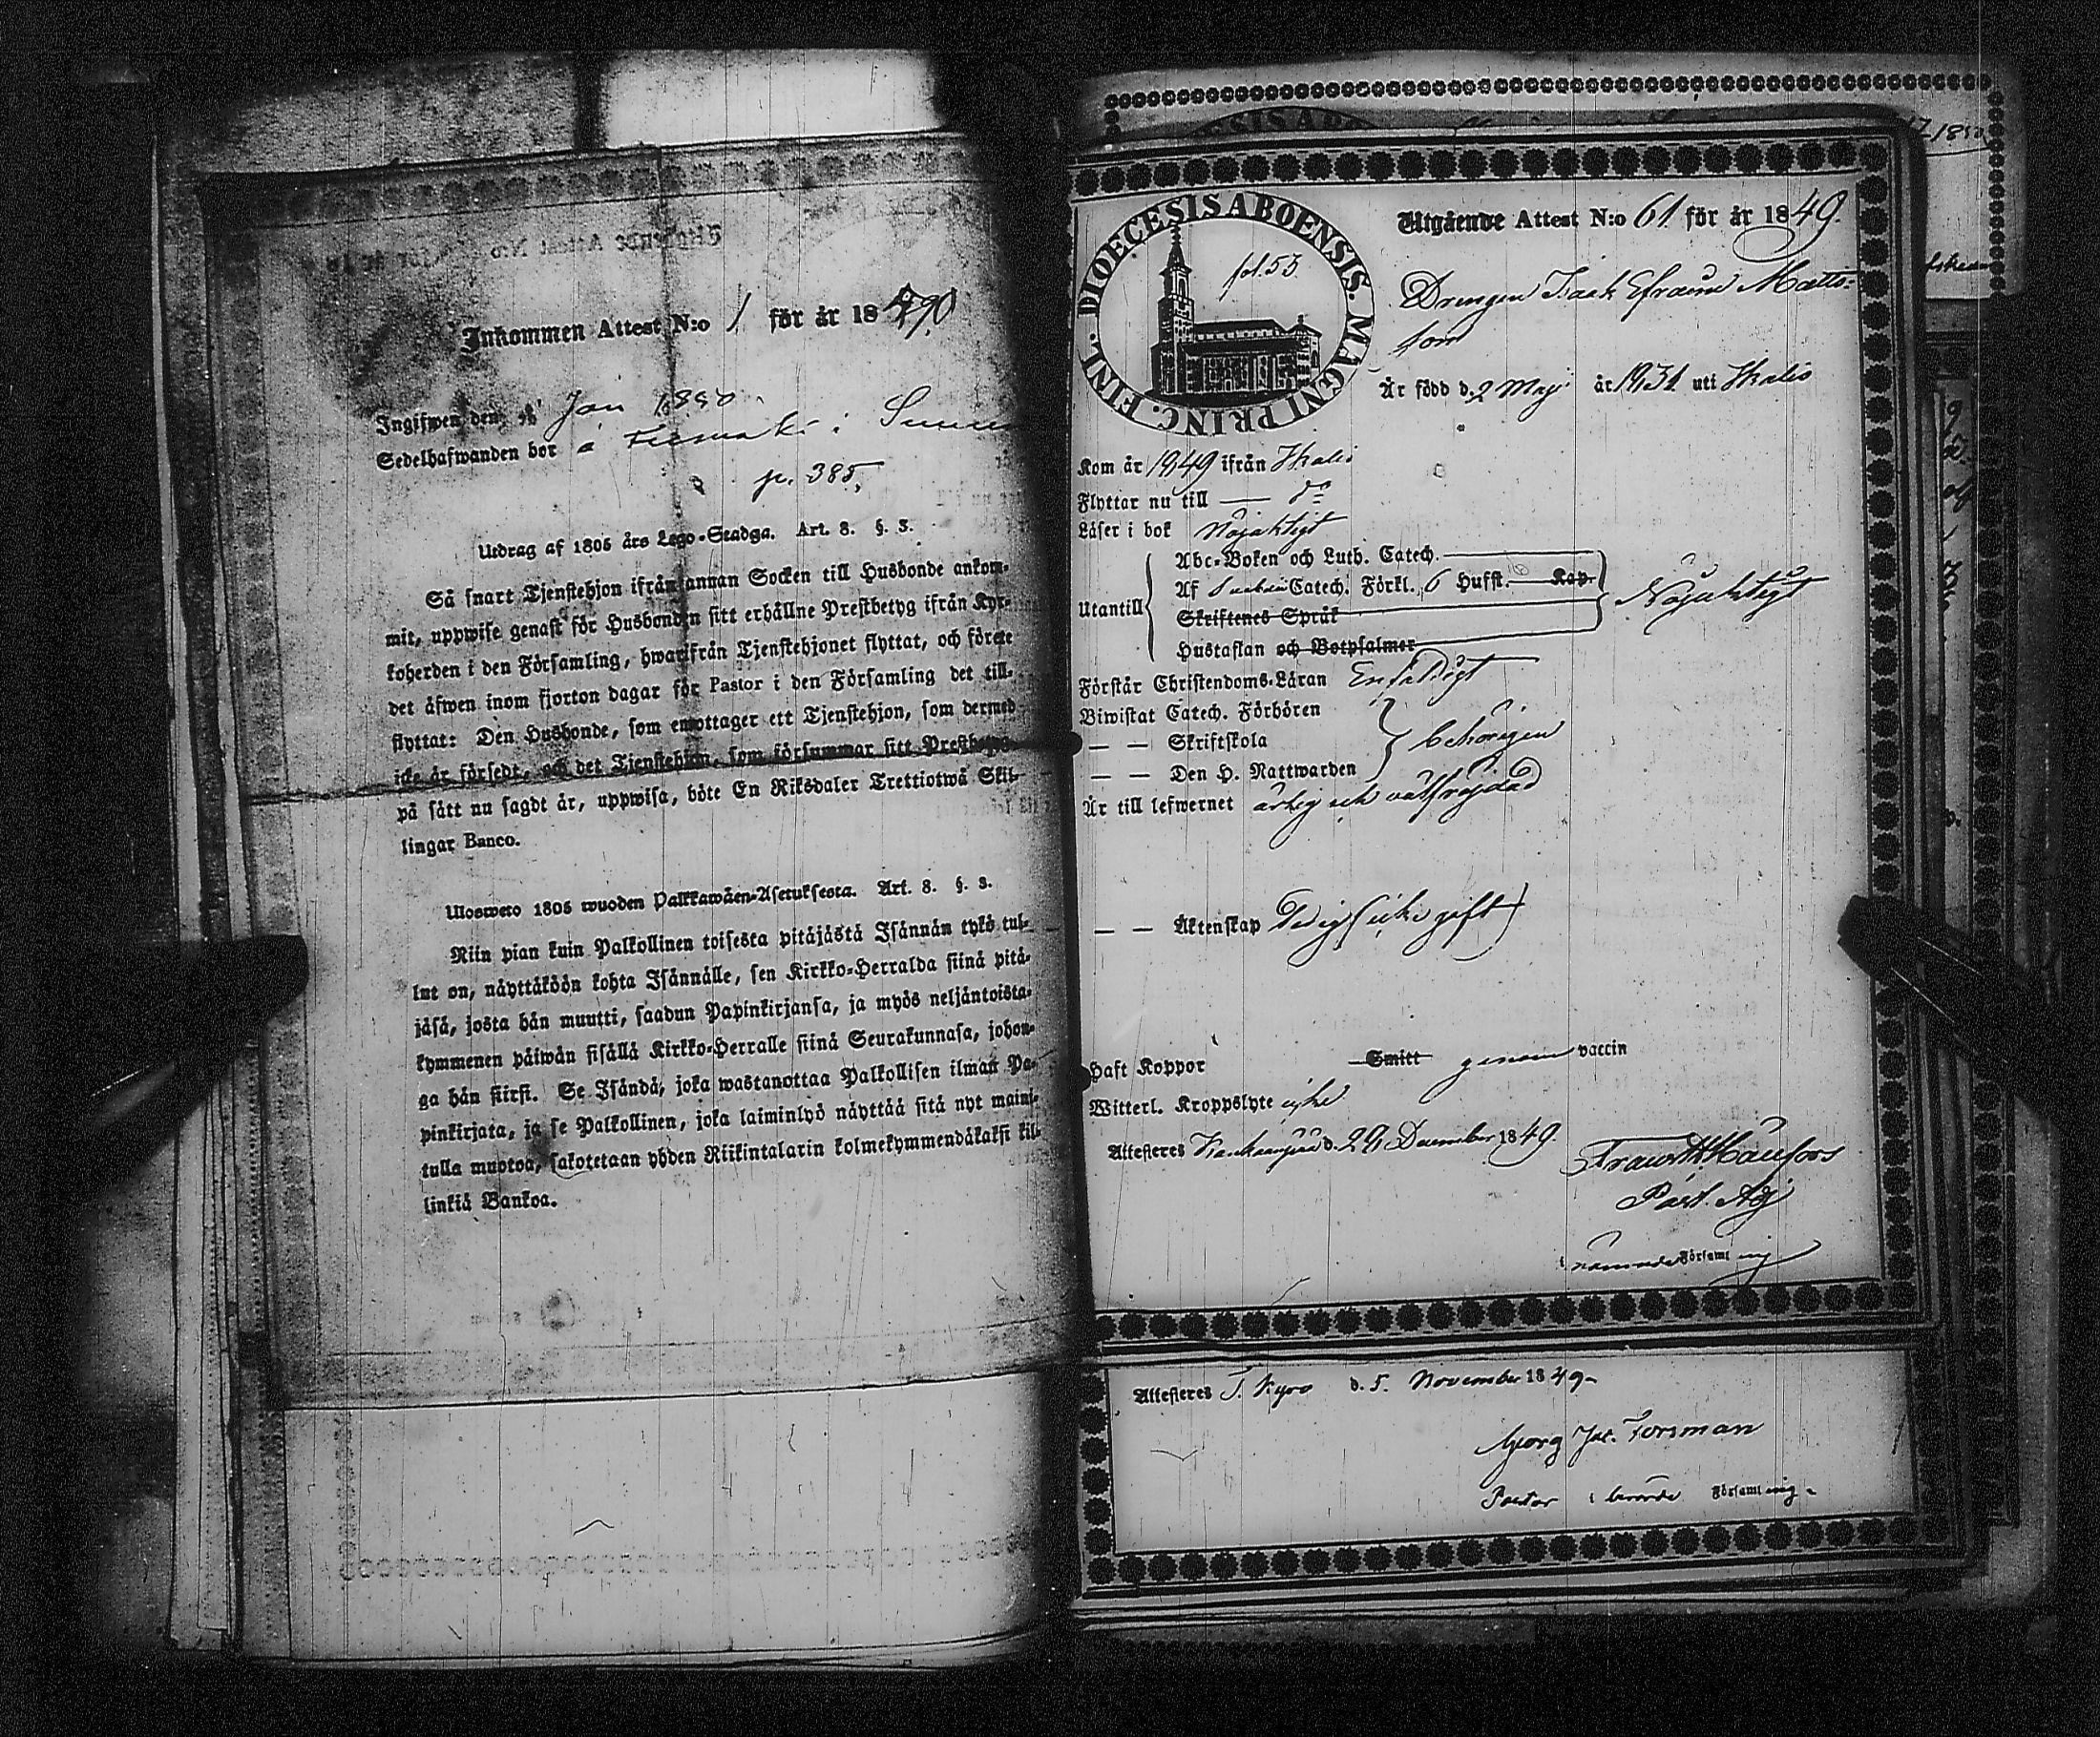 Inkommen Attest N:o 1 för år 18
Ingifwen den Jan 1850.
Sedelhafwanden bor å i
p. 385,
Utdrag af 1805 års Lego-Stadga. Art. 8. §. 3.
Så snart Tjenstehjon ifrån annan Socken till Husbonde ankom-
mit, uppwise genast för Husbonden sitt erhållne Prestbetyg ifrån Kyr-
koherden i den Församling, hwarifrån Tjenstehjonet flyttat, och förete
det äfwen inom fjorton dagar för Pastor i den Församling det till-
flyttat: Den Husbonde, som emottager ett Tjenstehjon, som dermed
icke är försedt, och det Tjenstehjon, som försummar sitt Prestbetyg
på sätt nu sagdt är, uppwisa, böte En Riksdaler Trettiotwå Skil-
lingar Banco.
Ulosweto 1805 wuoden Palkkawäen-Asetuksesta. Art. 8. §. 3.
Niin pian kuin Palkollinen toisesta pitäjästä Isännän tykö tul-
lut on, näyttäköön kohta Isännälle, sen Kirkko-Herralda siinä pitä-
jäsä, josta hän muutti, saadun Papinkirjansa, ja myös neljäntoista-
kymmenen päiwän sisällä Kirkko-Herralle siinä Seurakunnasa, johon-
ga hän siirsi. Se Isändä, joka wastanottaa Palkollisen ilman Pa-
pinkirjata, ja se Palkollinen, joka laiminlyö näyttää sitä nyt maini-
tulla muotoa, sakotetaan yhden Riikintalarin kolmekymmendäkaksi kil-
linkiä Bankoa.
DIOECESIS ABOENSIS. MAGNI PRINC. FINL.
fol. 53
Utgående Attest N:o 61 för år 1849.
Drengen Isaak Efraim Matts-
son
Är född d. 2 Maji år 1831 uti Ikalis
Kom år 1849 ifrån Ikalis
Flyttar nu till — do
Läser i bok Nöjaktigt
Utantill
Abc-Boken och Luth. Catech.
Af Catech. Förkl. 6 Hufst. Kap.
Skriftenes Språk
Hustaflan och Botpsalmer
Nöjaktigt
Förstår Christendoms-Läran Enfaldigt
Biwistat Catech. Förhören
— — Skriftskola
— — Den H. Nattwarden
behörigen
Är till lefwernet ärlig och välfräjdad
— — Äktenskap Ledig (icke gift)
Haft Koppor Smitt genom vaccin
Witterl. Kroppslyte icke
Attesteras Kankaanpää d. 29 December 1849.
Past. Adj
i nämnde Församling
Attesteras T. Kyro d. 5. November 1849
Georg Jac. Forsman
Pastor i berörde Församling